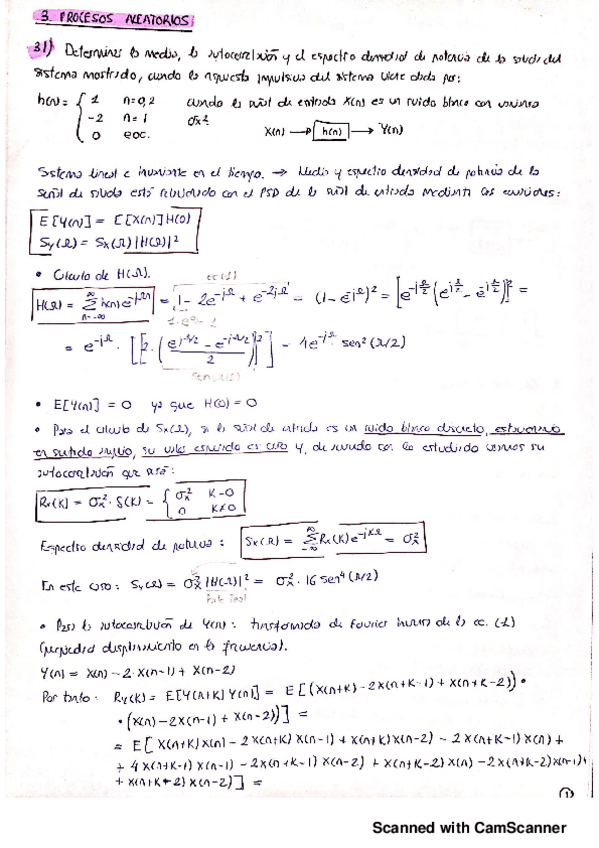 3. PROCESOS ALEATORIOS
3.1) Determinar la media, la autocorrelación y el espectro densidad de potencia de la salida del
sistema mostrado, cuando la respuesta impulsiva del sistema viene dada por:
h(n) = { 1 n=0,2 cuando la señal de entrada X(n) es un ruido blanco con varianza
-2 n=1 σx²
0 eoc. X(n) → h(n) → Y(n)
Sistema lineal e invariante en el tiempo. → Media y espectro densidad de potencia de la
señal de salida está relacionado con el PSD de la señal de entrada mediante las ecuaciones:
E[Y(n)] = E[X(n)] H(0)
Sy(Ω) = Sx(Ω) |H(Ω)|²
• Cálculo de H(Ω).
ec(1)
H(Ω) = Σ h(n) e^-jΩn = 1 - 2e^-jΩ + e^-2jΩ = (1 - e^-jΩ)² = [e^-jΩ/2 (e^jΩ/2 - e^-jΩ/2)]² =
n=-∞
= e^-jΩ · [[2 · (e^jΩ/2 - e^-jΩ/2)/2]²] = 4e^-jΩ sen²(Ω/2)
• E[Y(n)] = 0 ya que H(0) = 0
• Para el cálculo de Sx(Ω), si la señal de entrada es un ruido blanco discreto, estacionario
en sentido amplio, su valor esperado es cero y, de acuerdo con lo estudiado vemos su
autocorrelación que será:
Rx(K) = σx² · δ(K) = { σx² K=0
0 K≠0
Espectro densidad de potencia: Sx(Ω) = Σ Rx(K) e^-jKΩ = σx²
En este caso: Sy(Ω) = σx² |H(Ω)|² = σx² · 16 sen⁴(Ω/2)
Parte Real
• Para la autocorrelación de Y(n): transformada de Fourier inversa de la ec. (1)
(propiedad desplazamiento en la frecuencia).
Y(n) = X(n) - 2·X(n-1) + X(n-2)
Por tanto: Ry(K) = E[Y(n+K) Y(n)] = E[(X(n+K) - 2X(n+K-1) + X(n+K-2)) ·
· (X(n) - 2X(n-1) + X(n-2))] =
= E[X(n+K)X(n) - 2X(n+K)X(n-1) + X(n+K)X(n-2) - 2X(n+K-1)X(n) +
+ 4X(n+K-1)X(n-1) - 2X(n+K-1)X(n-2) + X(n+K-2)X(n) - 2X(n+K-2)X(n-1) +
+ X(n+K+2)X(n-2)] =
1
Scanned with CamScanner